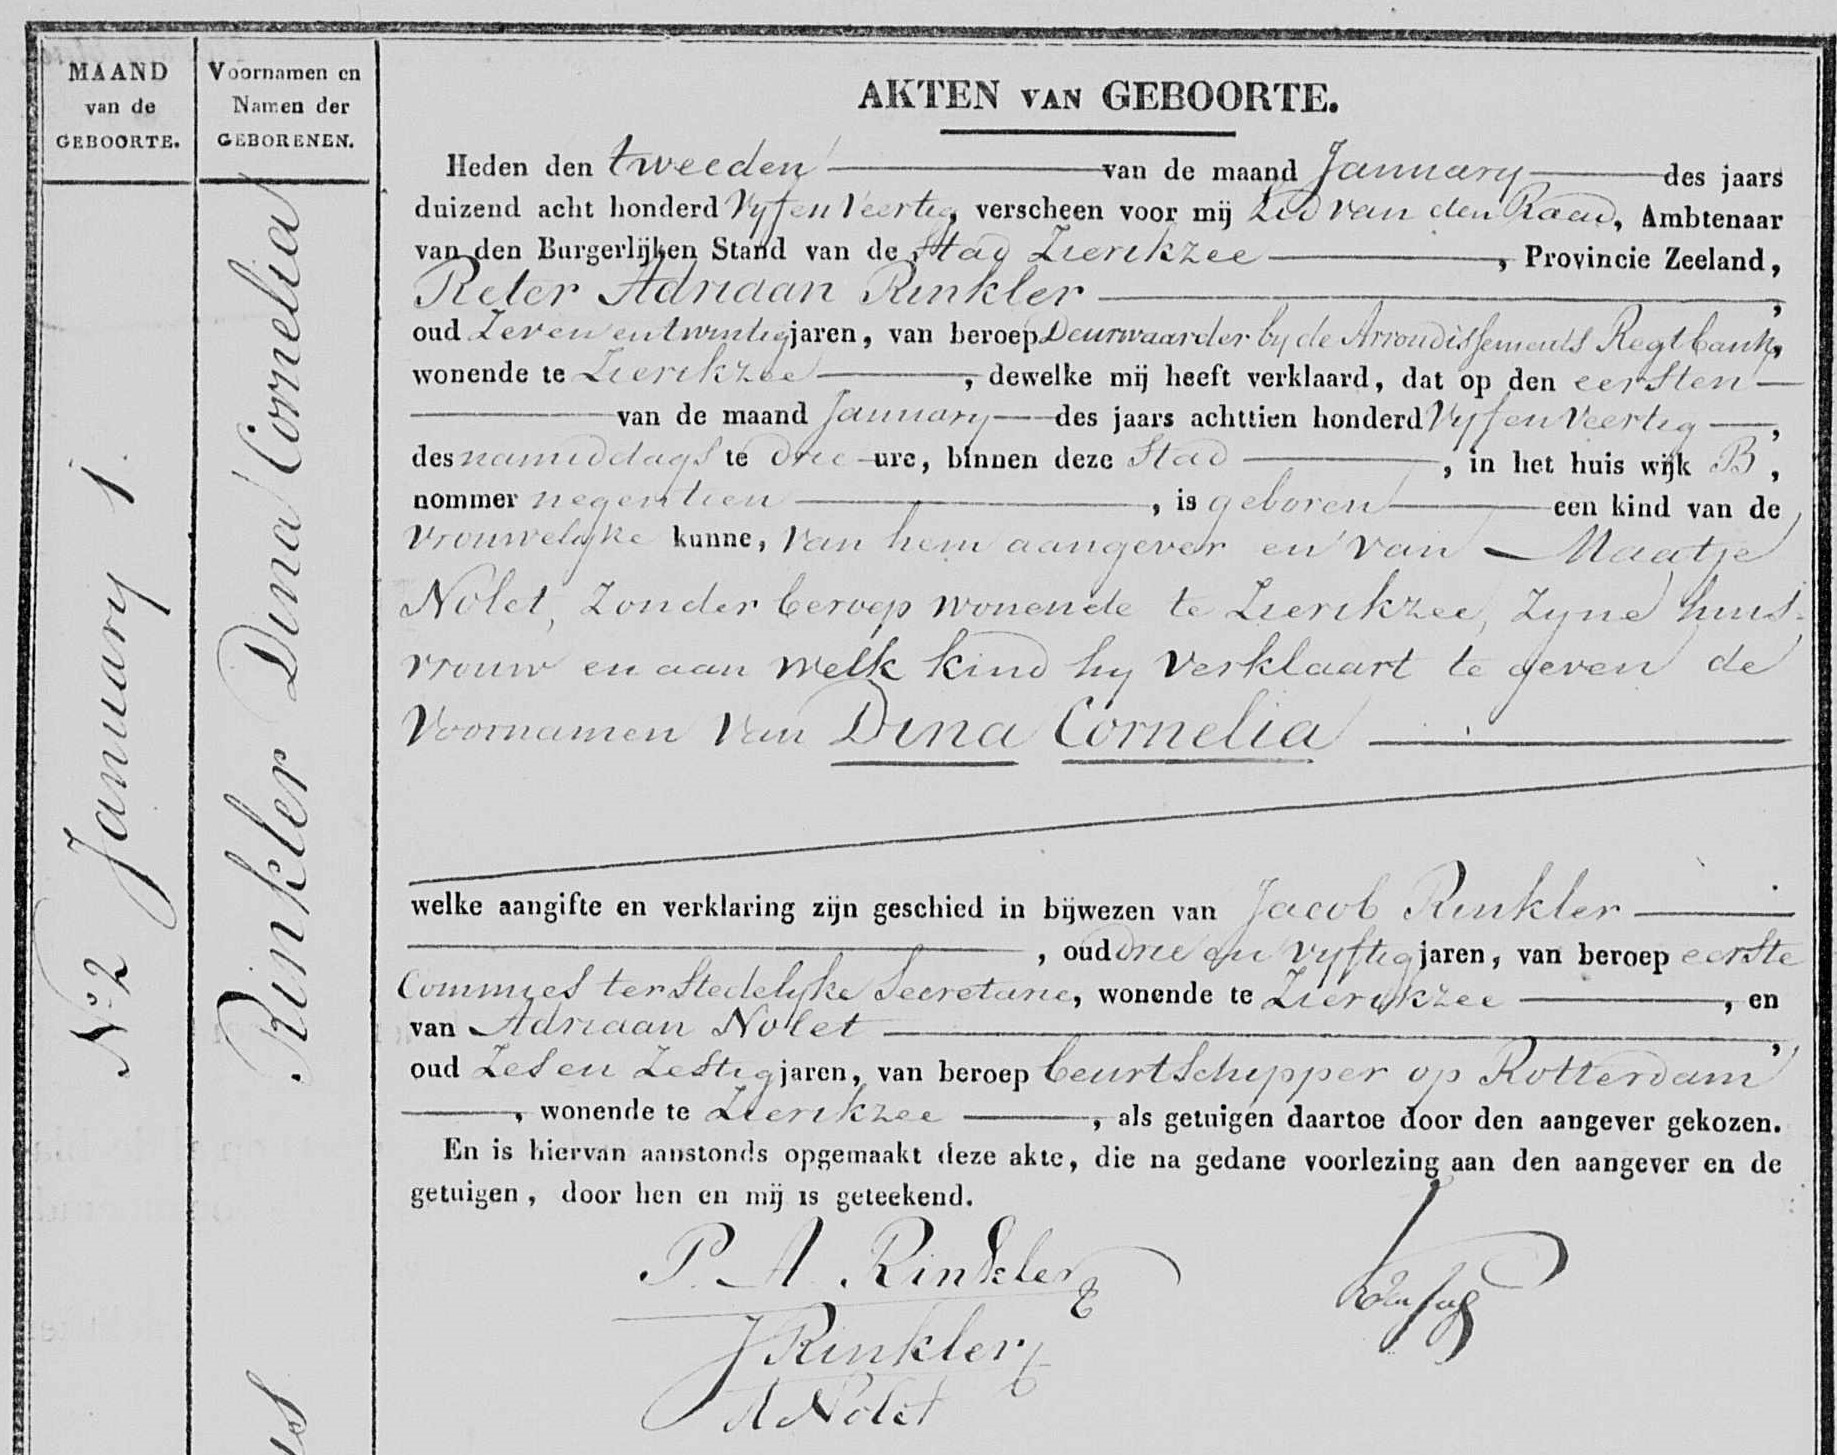 MAAND
van de
GEBOORTE.
Voornamen en
Namen der
GEBORENEN.
No 2 January 1.
Rinkler Dina Cornelia
AKTEN VAN GEBOORTE.
Heden den tweeden van de maand January des jaars
duizend acht honderd Vyf en Veertig, verscheen voor mij Lid van den Raad, Ambtenaar
van den Burgerlijken Stand van de Stad Zierikzee, Provincie Zeeland,
Peter Adriaan Rinkler,
oud Zeven en twintig jaren, van beroep Deurwaarder by de Arrondissements Regtbank,
wonende te Zierikzee, dewelke mij heeft verklaard, dat op den eersten
van de maand January des jaars achttien honderd Vyf en Veertig,
des namiddags te drie ure, binnen deze Stad, in het huis wijk B,
nommer negentien, is geboren een kind van de
vrouwelyke kunne, van hem aangever en van Maatje
Nolet, zonder beroep wonende te Zierikzee, zyne huis-
vrouw en aan welk kind hy verklaart te geven de
Voornamen van Dina Cornelia
welke aangifte en verklaring zijn geschied in bijwezen van Jacob Rinkler
, oud drie en vyftig jaren, van beroep eerste
Commies ter Stedelyke Secretarie, wonende te Zierikzee, en
van Adriaan Nolet,
oud Zes en Zestig jaren, van beroep beurtschipper op Rotterdam
, wonende te Zierikzee, als getuigen daartoe door den aangever gekozen.
En is hiervan aanstonds opgemaakt deze akte, die na gedane voorlezing aan den aangever en de
getuigen, door hen en mij is geteekend.
P. A. Rinkler
J Rinkler
A Nolet